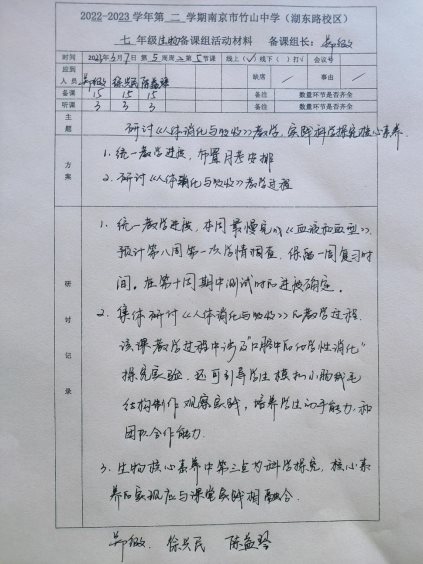 2022-2023学年第 二 学期南京市竹山中学（湖东路校区）
七 年级生物备课组活动材料 备课组长：
时间 2023年3月7日 第5周周二第5节课 线上（√）线下（ ）打√ 会议号
应到人员 徐兴民 陈益琴 缺席 / 事由 /
备课 15 15 15 备注 数量环节是否齐全
听课 3 3 3 备注 数量环节是否齐全
主题 研讨《人体消化与吸收》教学，实践科学探究核心素养.
方案
1. 统一教学进度，布置月考安排
2. 研讨《人体消化与吸收》教学过程
研讨记录
1. 统一教学进度，本周最慢完成《血液和血型》.
预计第八周第一次学情调查，保留一周复习时
间。在第十周期中测试时间进度确定。
2. 集体研讨《人体消化与吸收》的教学过程.
该课教学过程中涉及“口腔中的化学性消化”
探究实验. 还可引导学生模拟小肠绒毛
结构制作观察实践，培养学生动手能力和
团队合作能力.
3. 生物核心素养中第三点为科学探究，核心素
养的实现应与课堂实践相融合.
徐兴民 陈益琴